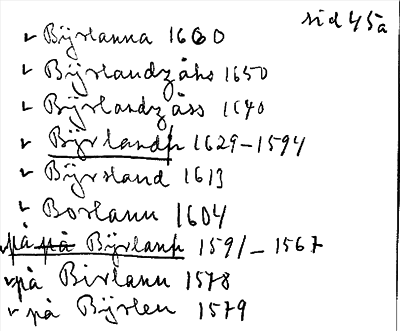 sid 45a
✓ Bÿrlanna 1660
✓ Bÿrlandzåhs 1650
✓ Bÿrlandzåss 1640
✓ Bÿrlandh 1629-1594
✓ Bÿrsland 1613
✓ Borlanu 1604
på på Bÿrlanh 1591-1567
✓ på Birlanu 1578
✓ på Bÿrlen 1579